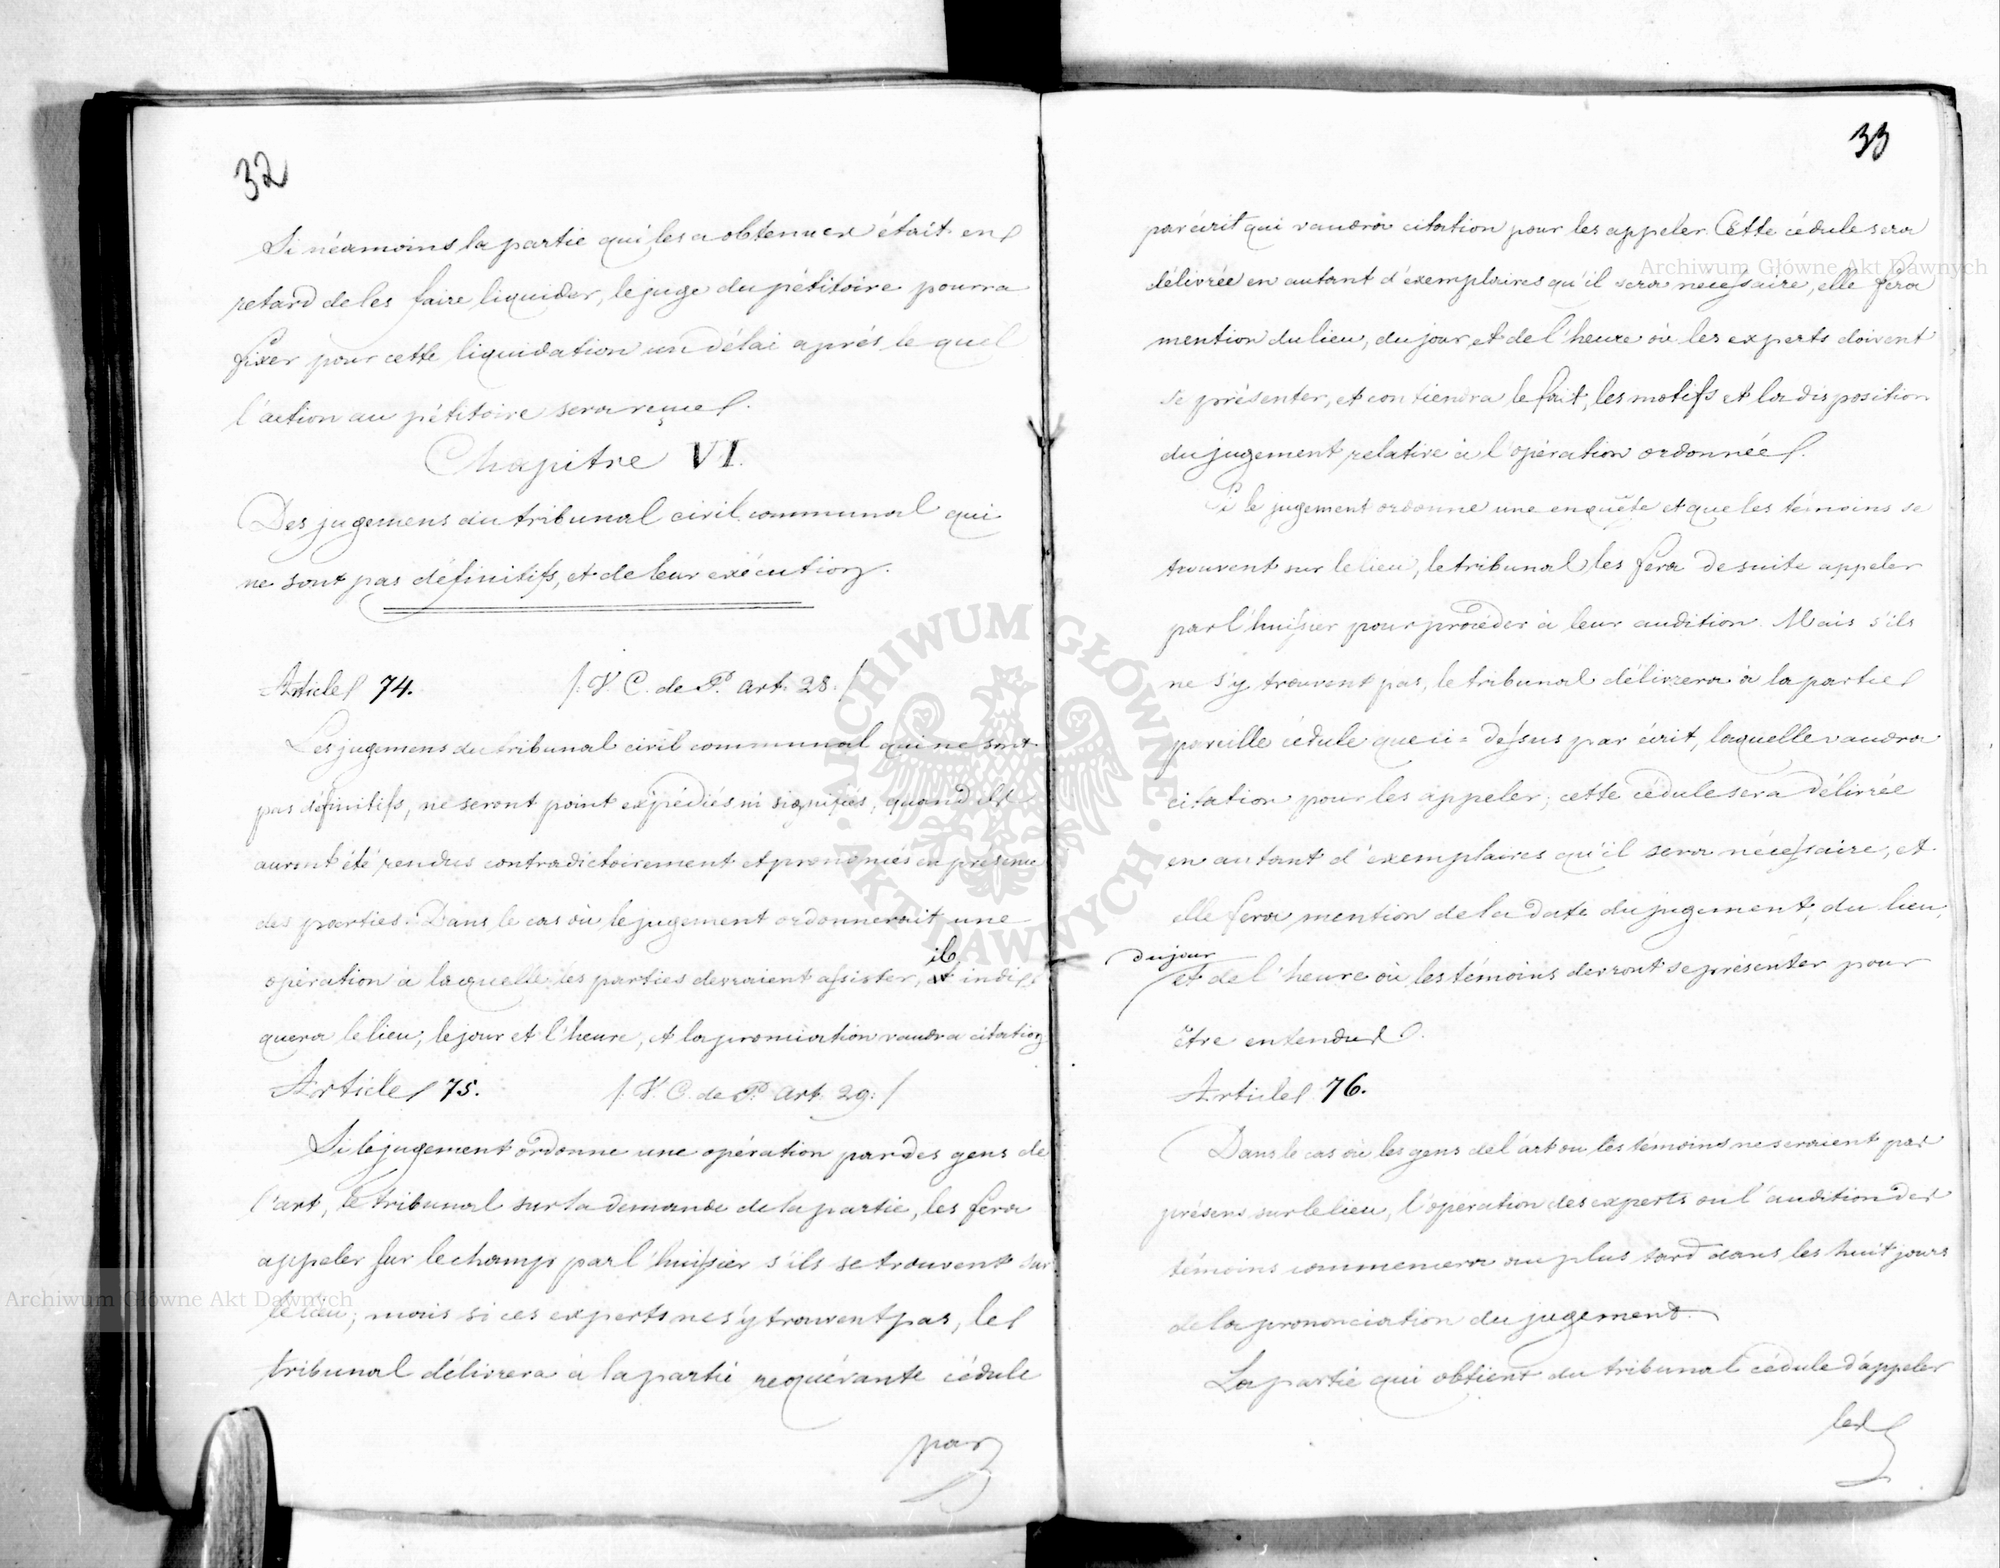 32
Si néanmoins la partie qui les a obtenues était en
retard de les faire liquider, le juge du pétitoire pourra
fixer pour cette liquidation un délai après le quel
l'action au pétitoire sera reçue.
Chapitre VI.
Des jugemens du tribunal civil communal qui
ne sont pas définitifs, et de leur exécution.
Article 74. /: V. C. de P. art. 28. /
Les jugemens du tribunal civil communal qui ne sont
pas définitifs, ne seront point expédiés ni signifiés, quand ils
auront été rendus contradictoirement et prononcés en présence
des parties. Dans le cas où le jugement ordonnerait une
opération à laquelle les parties devraient assister, il indi-
quera le lieu, le jour et l'heure, et la pronciation vaudra citation
Article 75. /: V. C. de P. art. 29: /
Si le jugement ordonne une opération par des gens de
l'art, le tribunal sur la demande de la partie, les fera
appeler sur le champ par l'huissier s'ils se trouvent sur
le lieu; mais si ces experts ne s'y trouvent pas, le
tribunal délivrera à la partie requérante cédule
par
33
par écrit qui vaudra citation pour les appeler. Cette cédule sera
délivrée en autant d'exemplaires qu'il sera nécessaire, elle fera
mention du lieu, du jour, et de l'heure où les experts doivent
se présenter, et contiendra le fait, les motifs et la disposition
du jugement relative à l'opération ordonnée.
Si le jugement ordonne une enquête et que les témoins se
trouvent sur le lieu, le tribunal les fera de suite appeler
par l'huissier pour procéder à leur audition. Mais s'ils
ne s'y trouvent pas, le tribunal délivrera à la partie
pareille cédule que ci=dessus par écrit, laquelle vaudra
citation pour les appeler; cette cédule sera délivrée
en autant d'exemplaires qu'il sera nécessaire, et
elle fera mention de la date du jugement, du lieu,
du jour
et de l'heure où les témoins devront se présenter pour
être entendus.
Article 76.
Dans le cas où les gens de l'art ou les témoins ne seraient pas
présens sur le lieu, l'opération des experts ou l'audition des
témoins commencera au plus tard dans les huit jours
de la prononciation du jugement.
La partie qui obtient du tribunal cédule d'appeler
les
Archiwum Główne Akt Dawnych
Archiwum Główne Akt Dawnych
ARCHIWUM GŁÓWNE AKT DAWNYCH